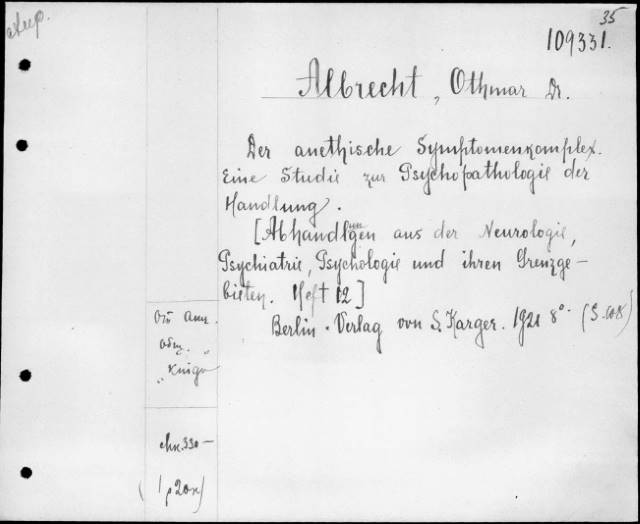 35
109331.
Albrecht, Othmar Dr.
Der anethische Symptomenkomplex.
Eine Studie zur Psychopathologie der
Handlung.
[Abhandlgen aus der Neurologie,
Psychiatrie, Psychologie und ihren Grenzge-
bieten. Heft 12]
Berlin. Verlag von S. Karger. 1921 8°.